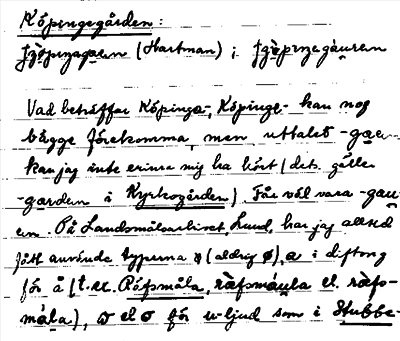 Köpingegården:
(Hartman) ;
Vad beträffar Köpinga-, Köpinge- kan nog
bägge förekomma, men uttalet -gaen
kan jag inte erinra mig ha hört (dets. gäller
-garden i Kyrkogården). Får väl vara -gau-
en. På Landsmålsarkivet Lund, har jag alltid
fått använda typerna (aldrig ø), a i diftong
för å (t.ex. Röfsmåla, el.
), el σ för u-ljud som i Stubbe-